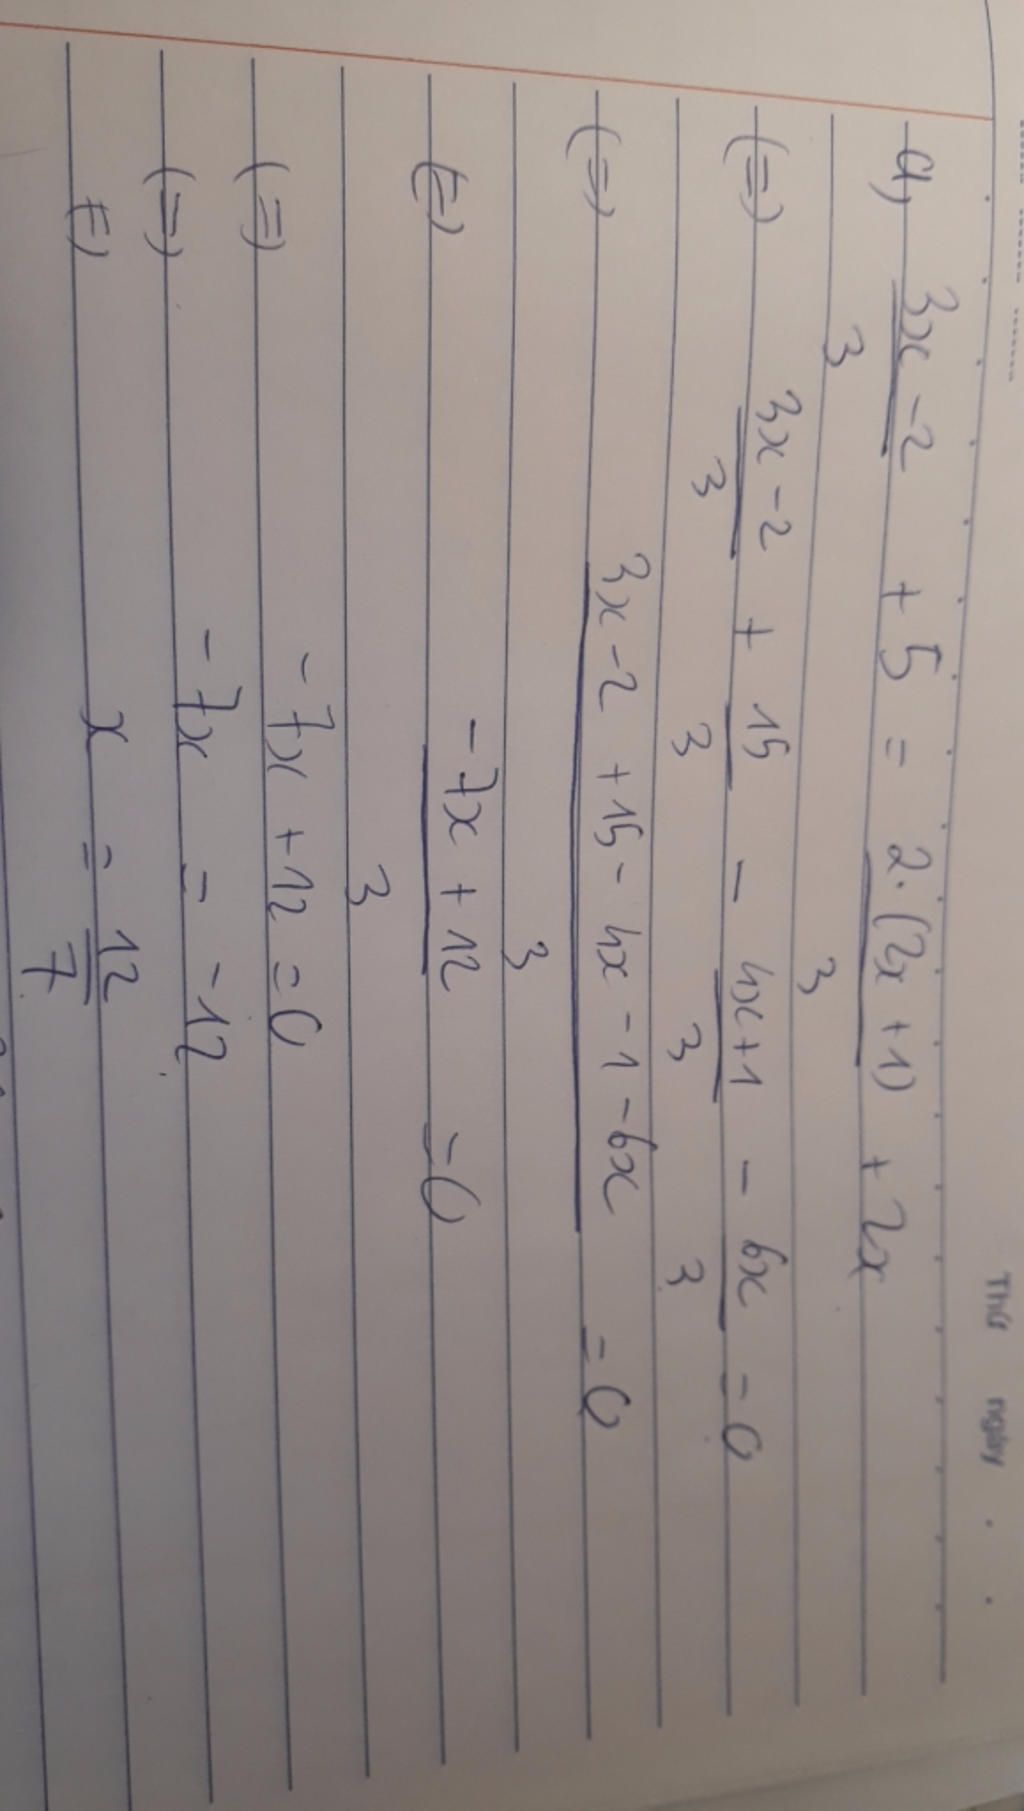 Thứ ngày . .
a, (3x - 2)/3 + 5 = (2.(2x + 1))/3 + 2x
(=) (3x - 2)/3 + 15/3 - (4x+1)/3 - 6x/3 = 0
(=) (3x - 2 + 15 - 4x - 1 - 6x)/3 = 0
(=) (-7x + 12)/3 = 0
(=) -7x + 12 = 0
(=) -7x = -12
(=) x = 12/7